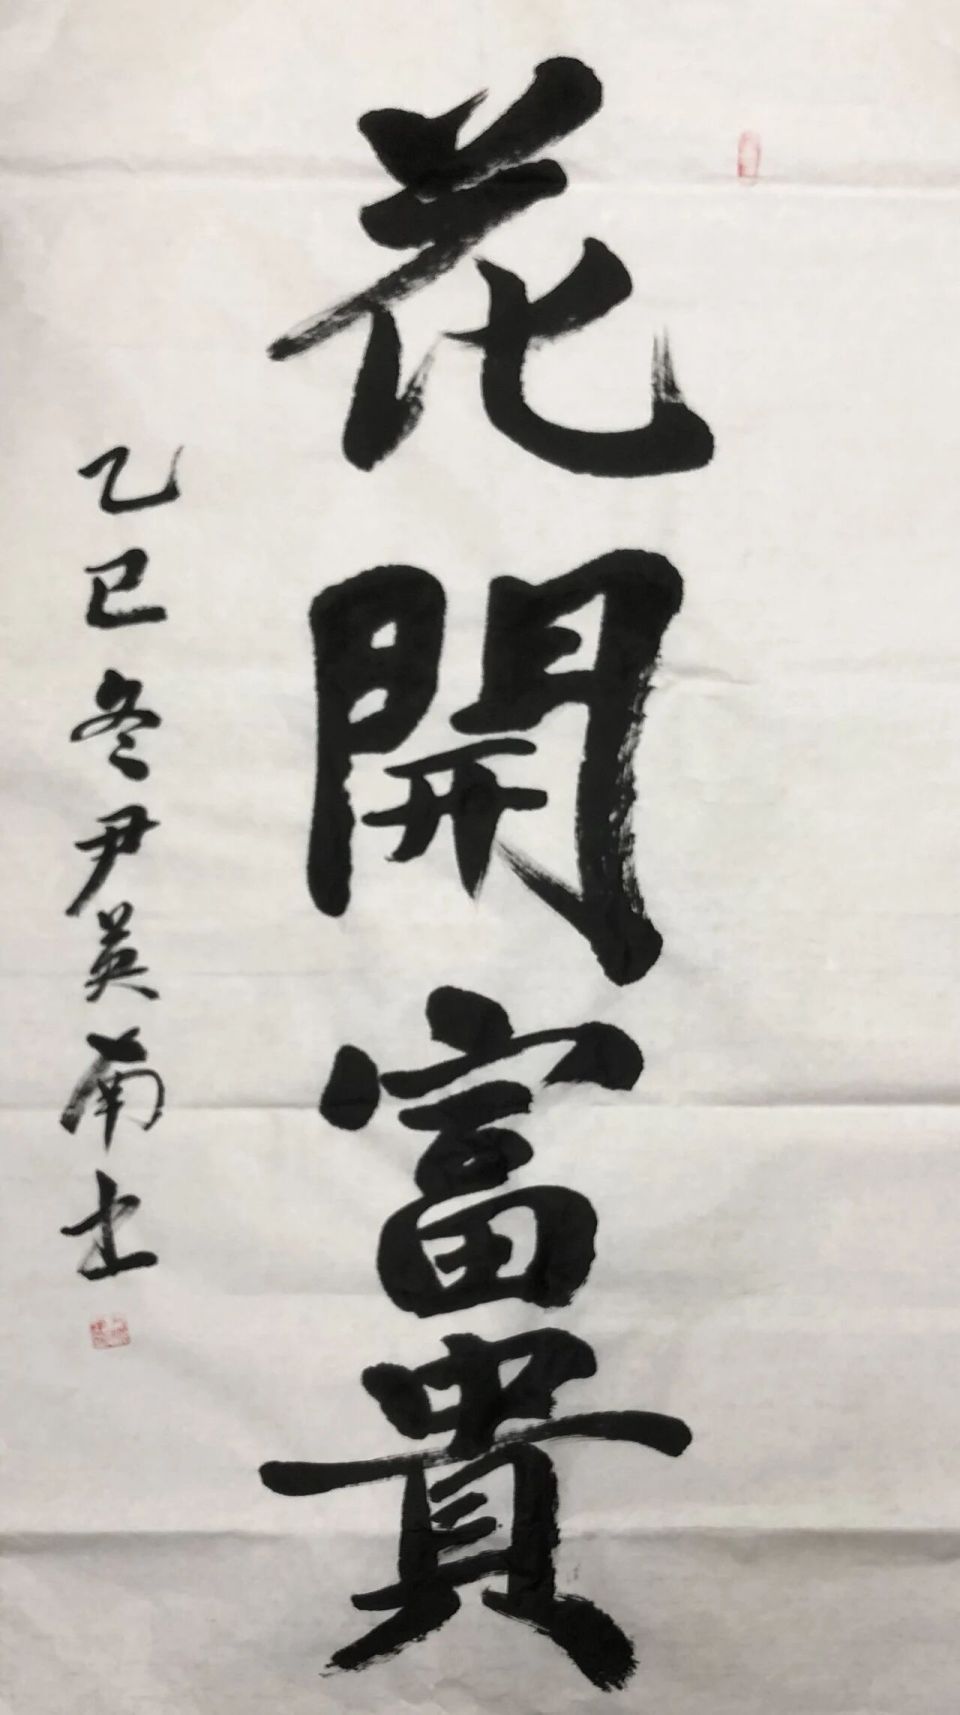 花開富貴
乙巳冬尹英南书